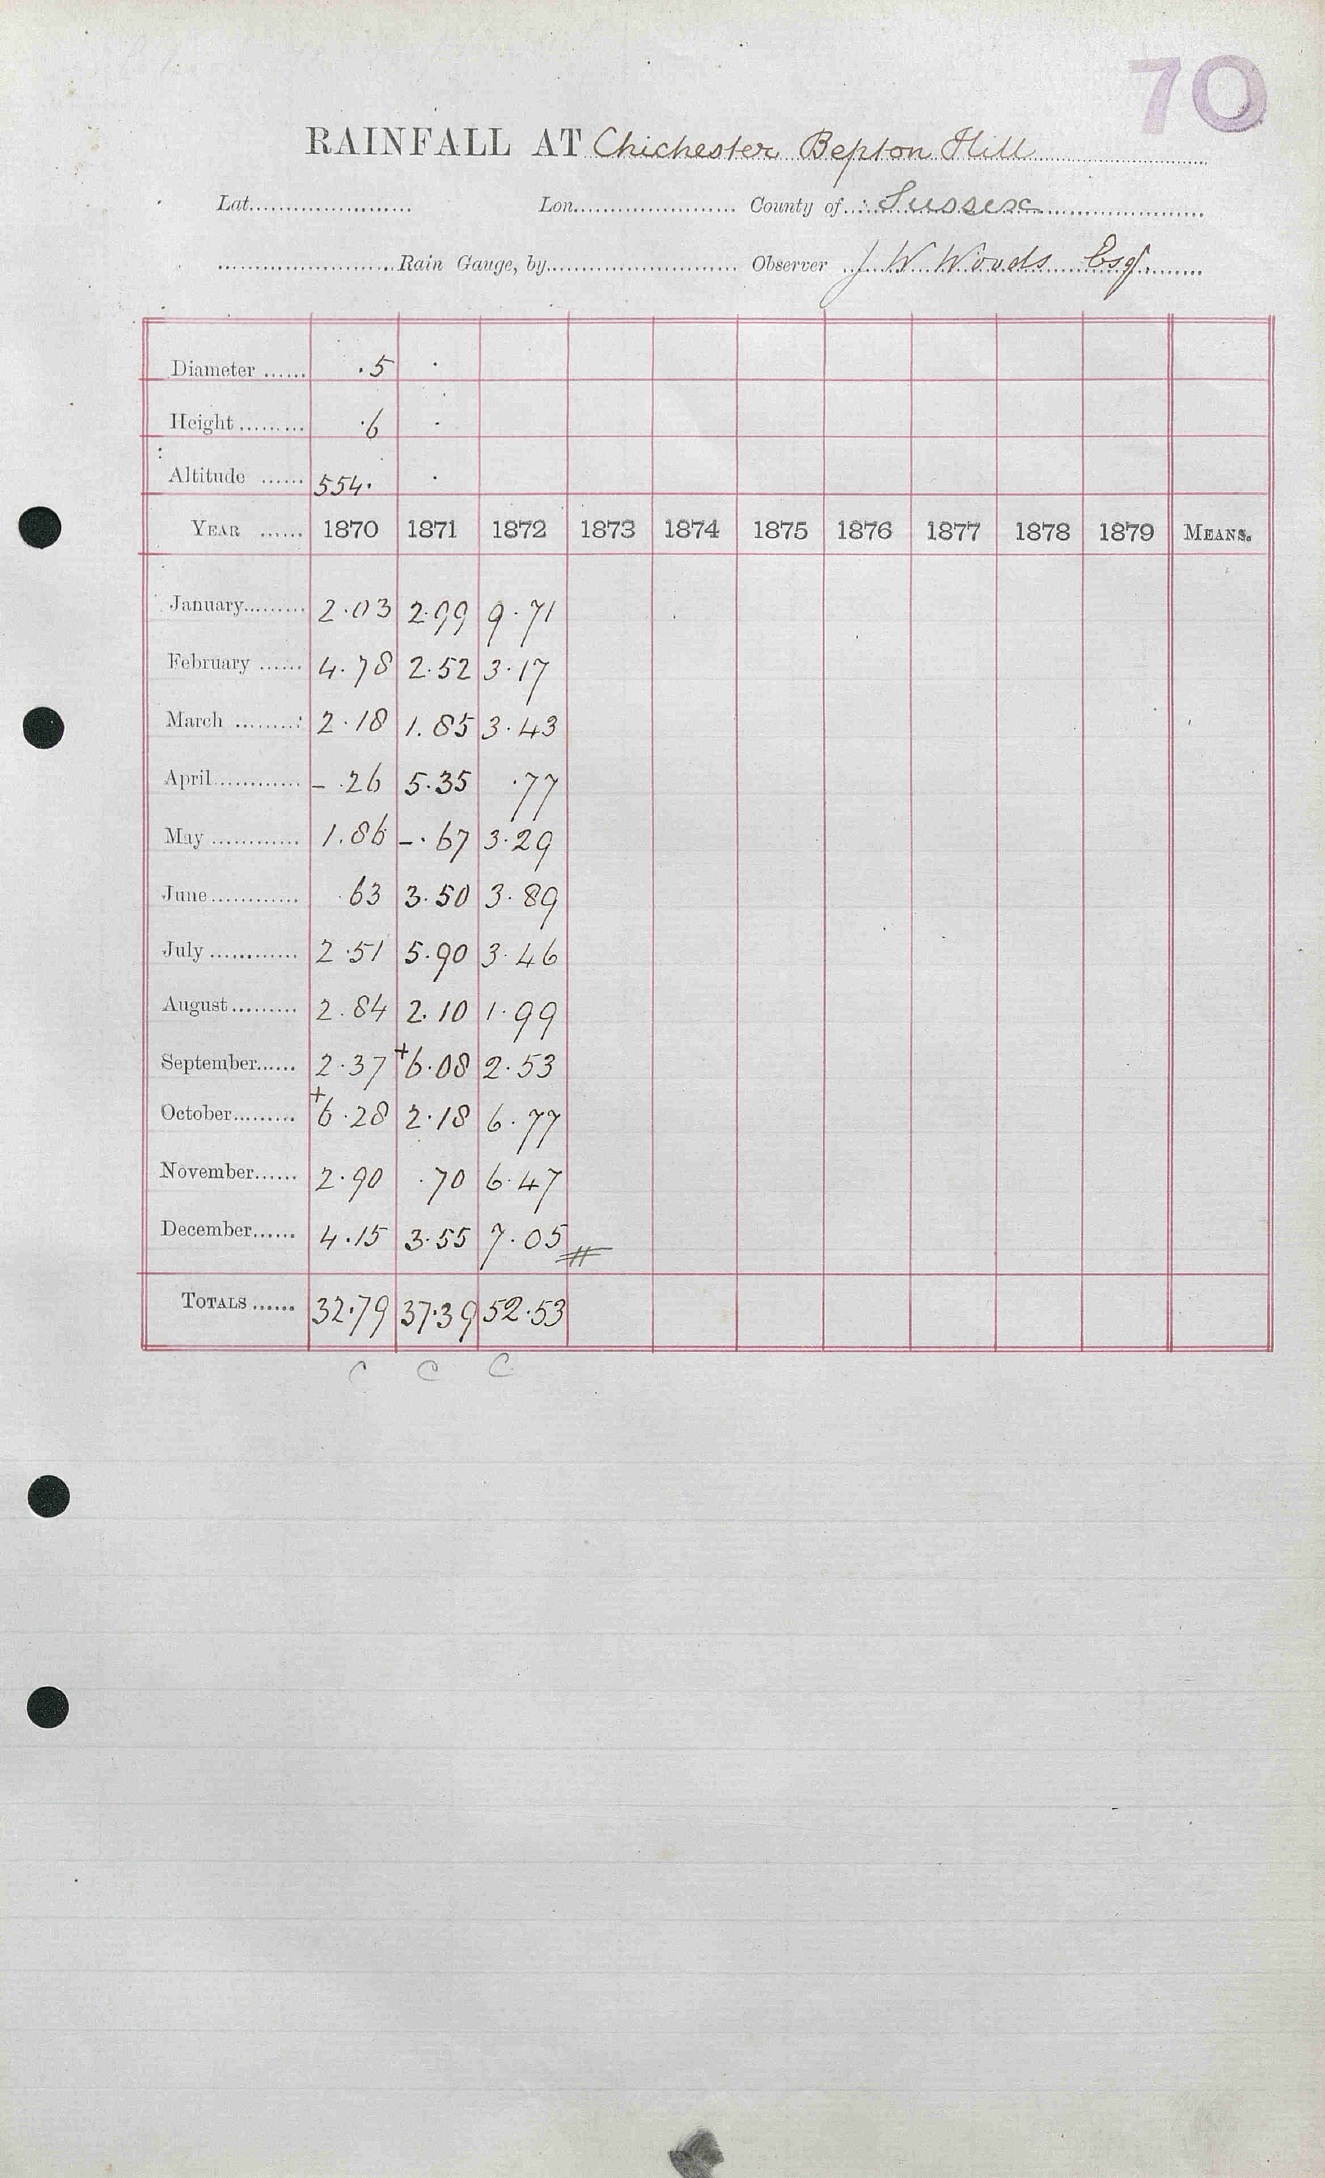 70
RAINFALL AT Chichester Bepton Hill
Lat...................... Lon...................... County of Sussex
........................Rain Gauge, by.......................... Observer J W Woods Esq.
Diameter ...... .5 .
Height ......... .6 .
Altitude ...... 554. .
YEAR ...... 1870 1871 1872 1873 1874 1875 1876 1877 1878 1879 MEANS.
January......... 2.03 2.99 9.71
February ...... 4.78 2.52 3.17
March ......... 2.18 1.85 3.43
April............ - .26 5.35 .77
May ............ 1.86 -.67 3.29
June............ .63 3.50 3.89
July ............ 2.51 5.90 3.46
August......... 2.84 2.10 1.99
September...... 2.37 +6.08 2.53
October......... +6.28 2.18 6.77
November...... 2.90 .70 6.47
December...... 4.15 3.55 7.05
TOTALS ...... 32.79 37.39 52.53
C C C